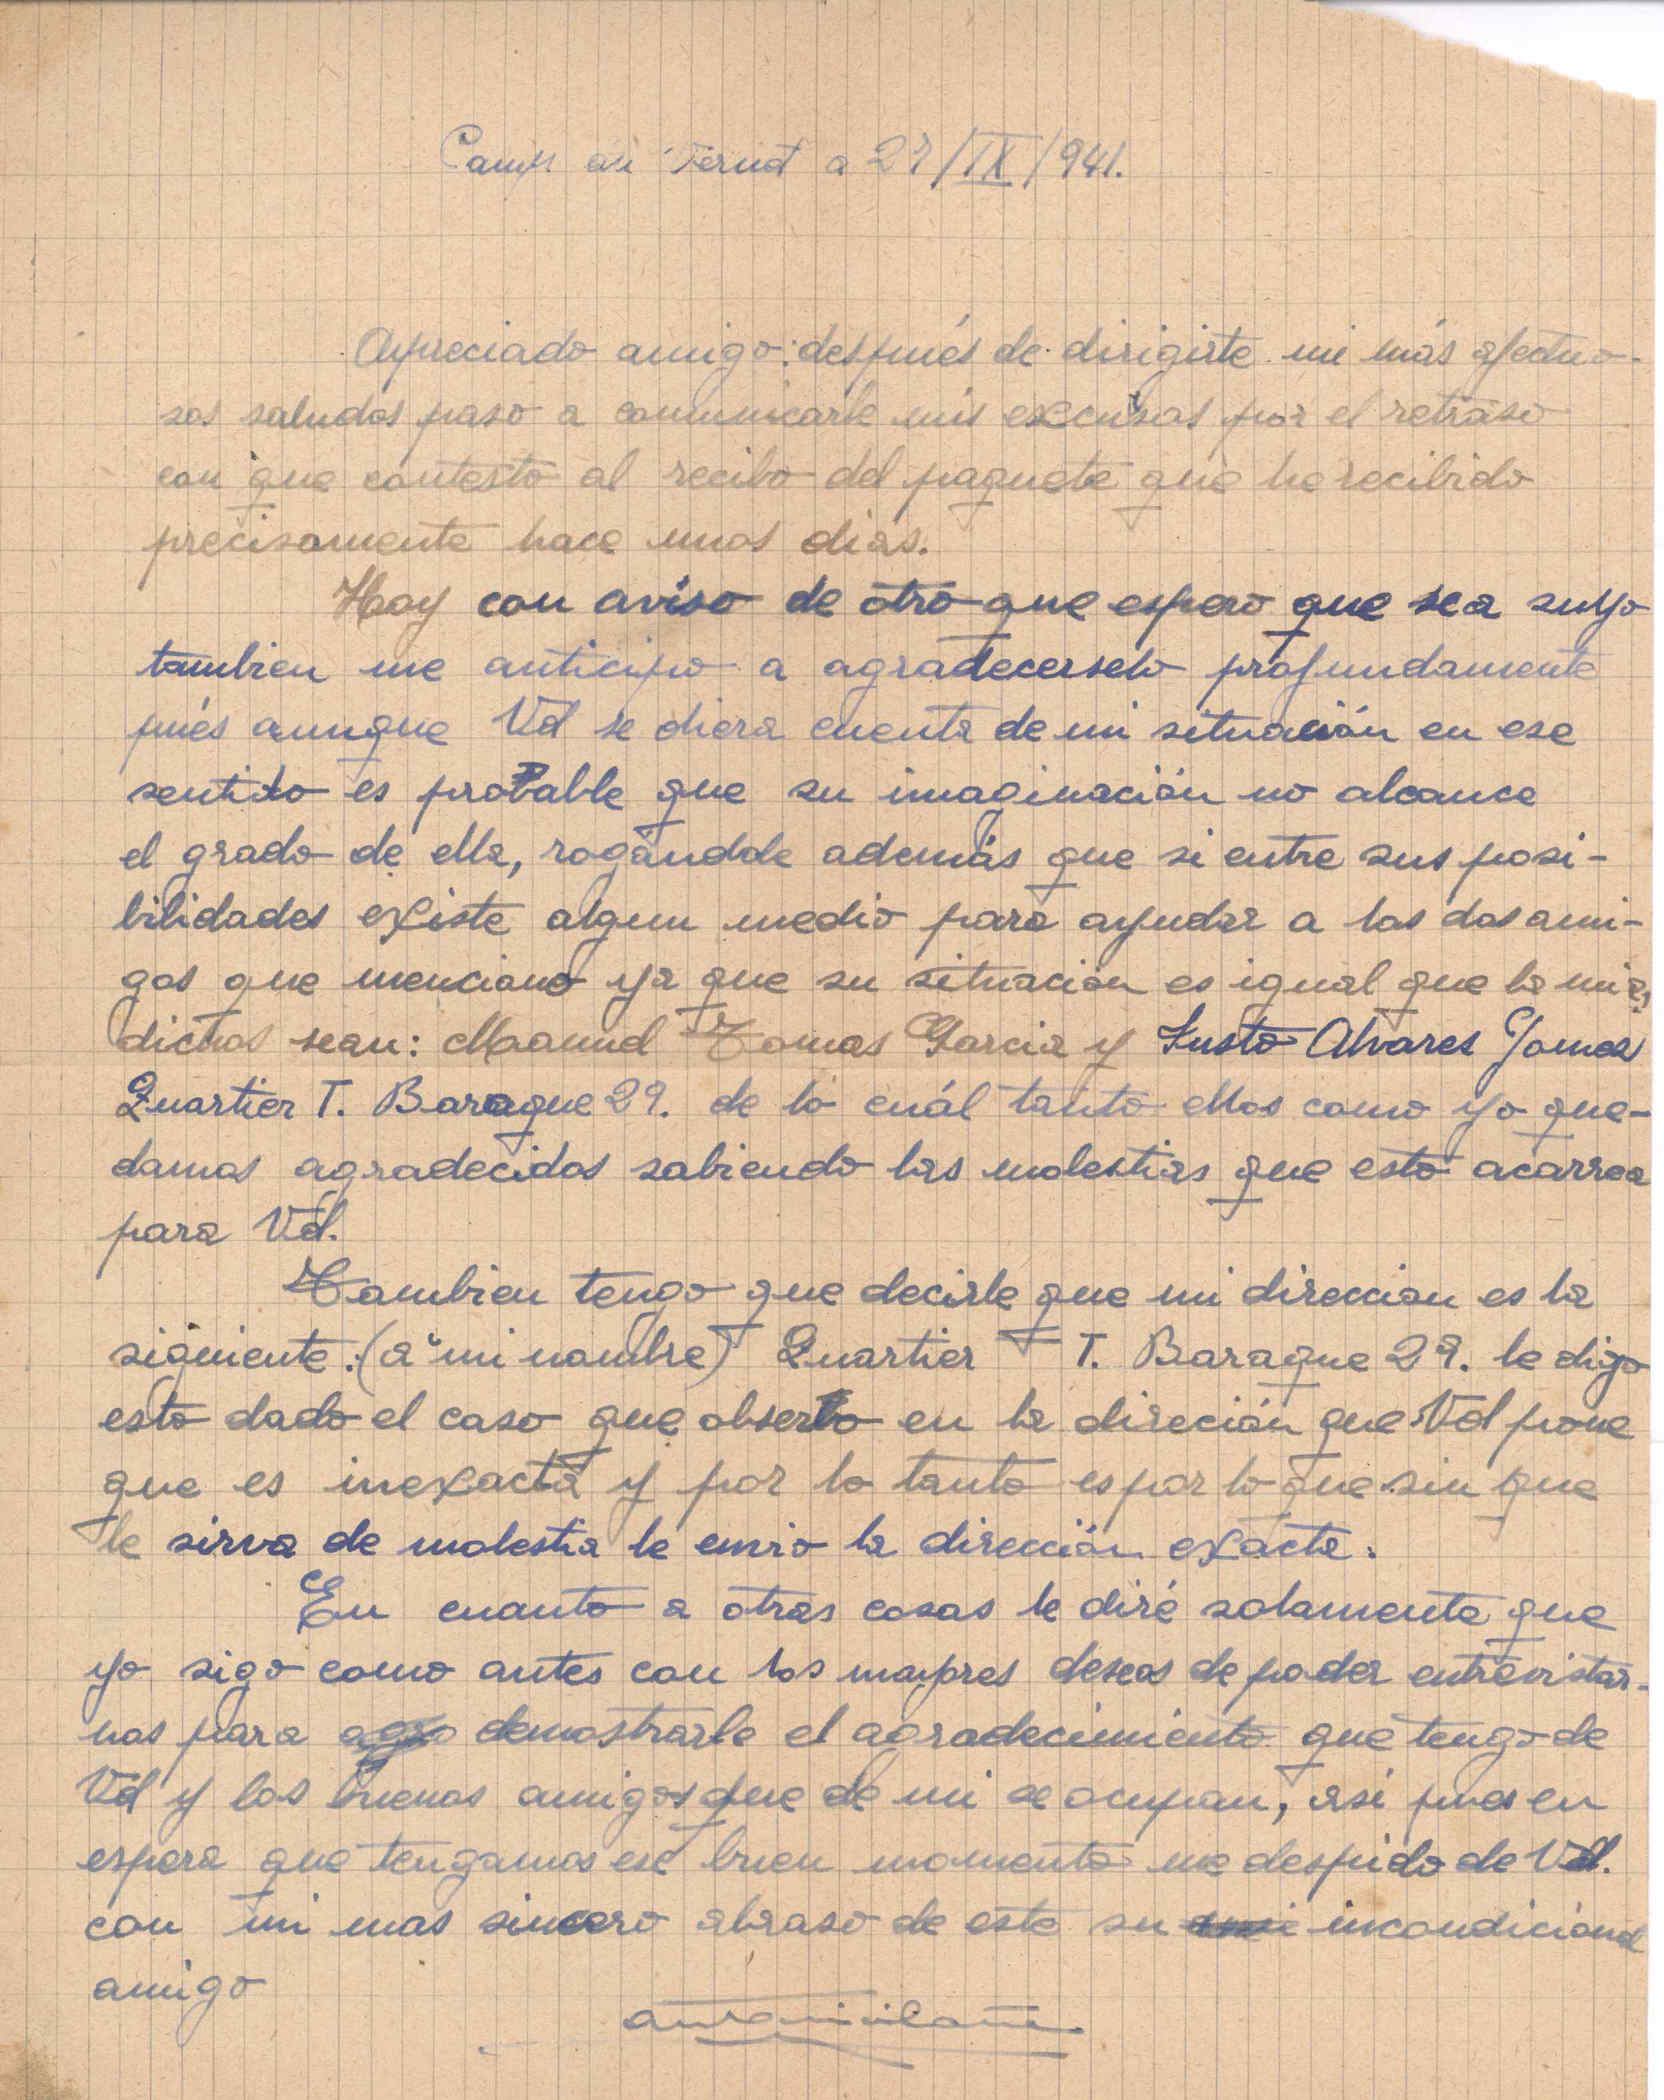 Camp du Vernet a 29/IX/941.
Apreciado amigo: después de dirigirte mi más afectuo-
sos saludos paso a comunicarle mis excusas por el retraso
con que contesto al recibo del paquete que he recibido
precisamente hace unos dias.
Hoy con aviso de otro que espero que sea suyo
tambien me anticipo a agradecerselo profundamente
pués aunque Vd se diera cuenta de mi situación en ese
sentido es probable que su imaginación no alcance
el grado de ella, rogándole además que si entre sus posi-
bilidades existe algun medio para ayudar a los dos ami-
gos que menciono ya que su situacion es igual que la mia,
dichos sean: Maanuel Tomas Garcia y Justo Alvares Gomez
Quartier T. Baraque 29. de lo cuál tanto ellos como yo que-
damos agradecidos sabiendo las molestias que esto acarrea
para Vd.
Tambien tengo que decirle que mi direccion es la
siguiente: (a mi nombre) Quartier T. Baraque 29. le digo
esto dado el caso que observo en la direción que Vd pone
que es inexacta y por lo tanto es por lo que sin que
le sirva de molestia le envio la dirección exacta.
En cuanto a otras cosas le diré solamente que
yo sigo como antes con los mayores deseos de poder entrevistar-
nos para demostrarle el agradecimiento que tengo de
Vd y los buenos amigos que de mi se ocupan, asi pues en
espera que tengamos ese buen momento me despido de Vd.
con mi mas sincero abraso de este su incondicional
amigo